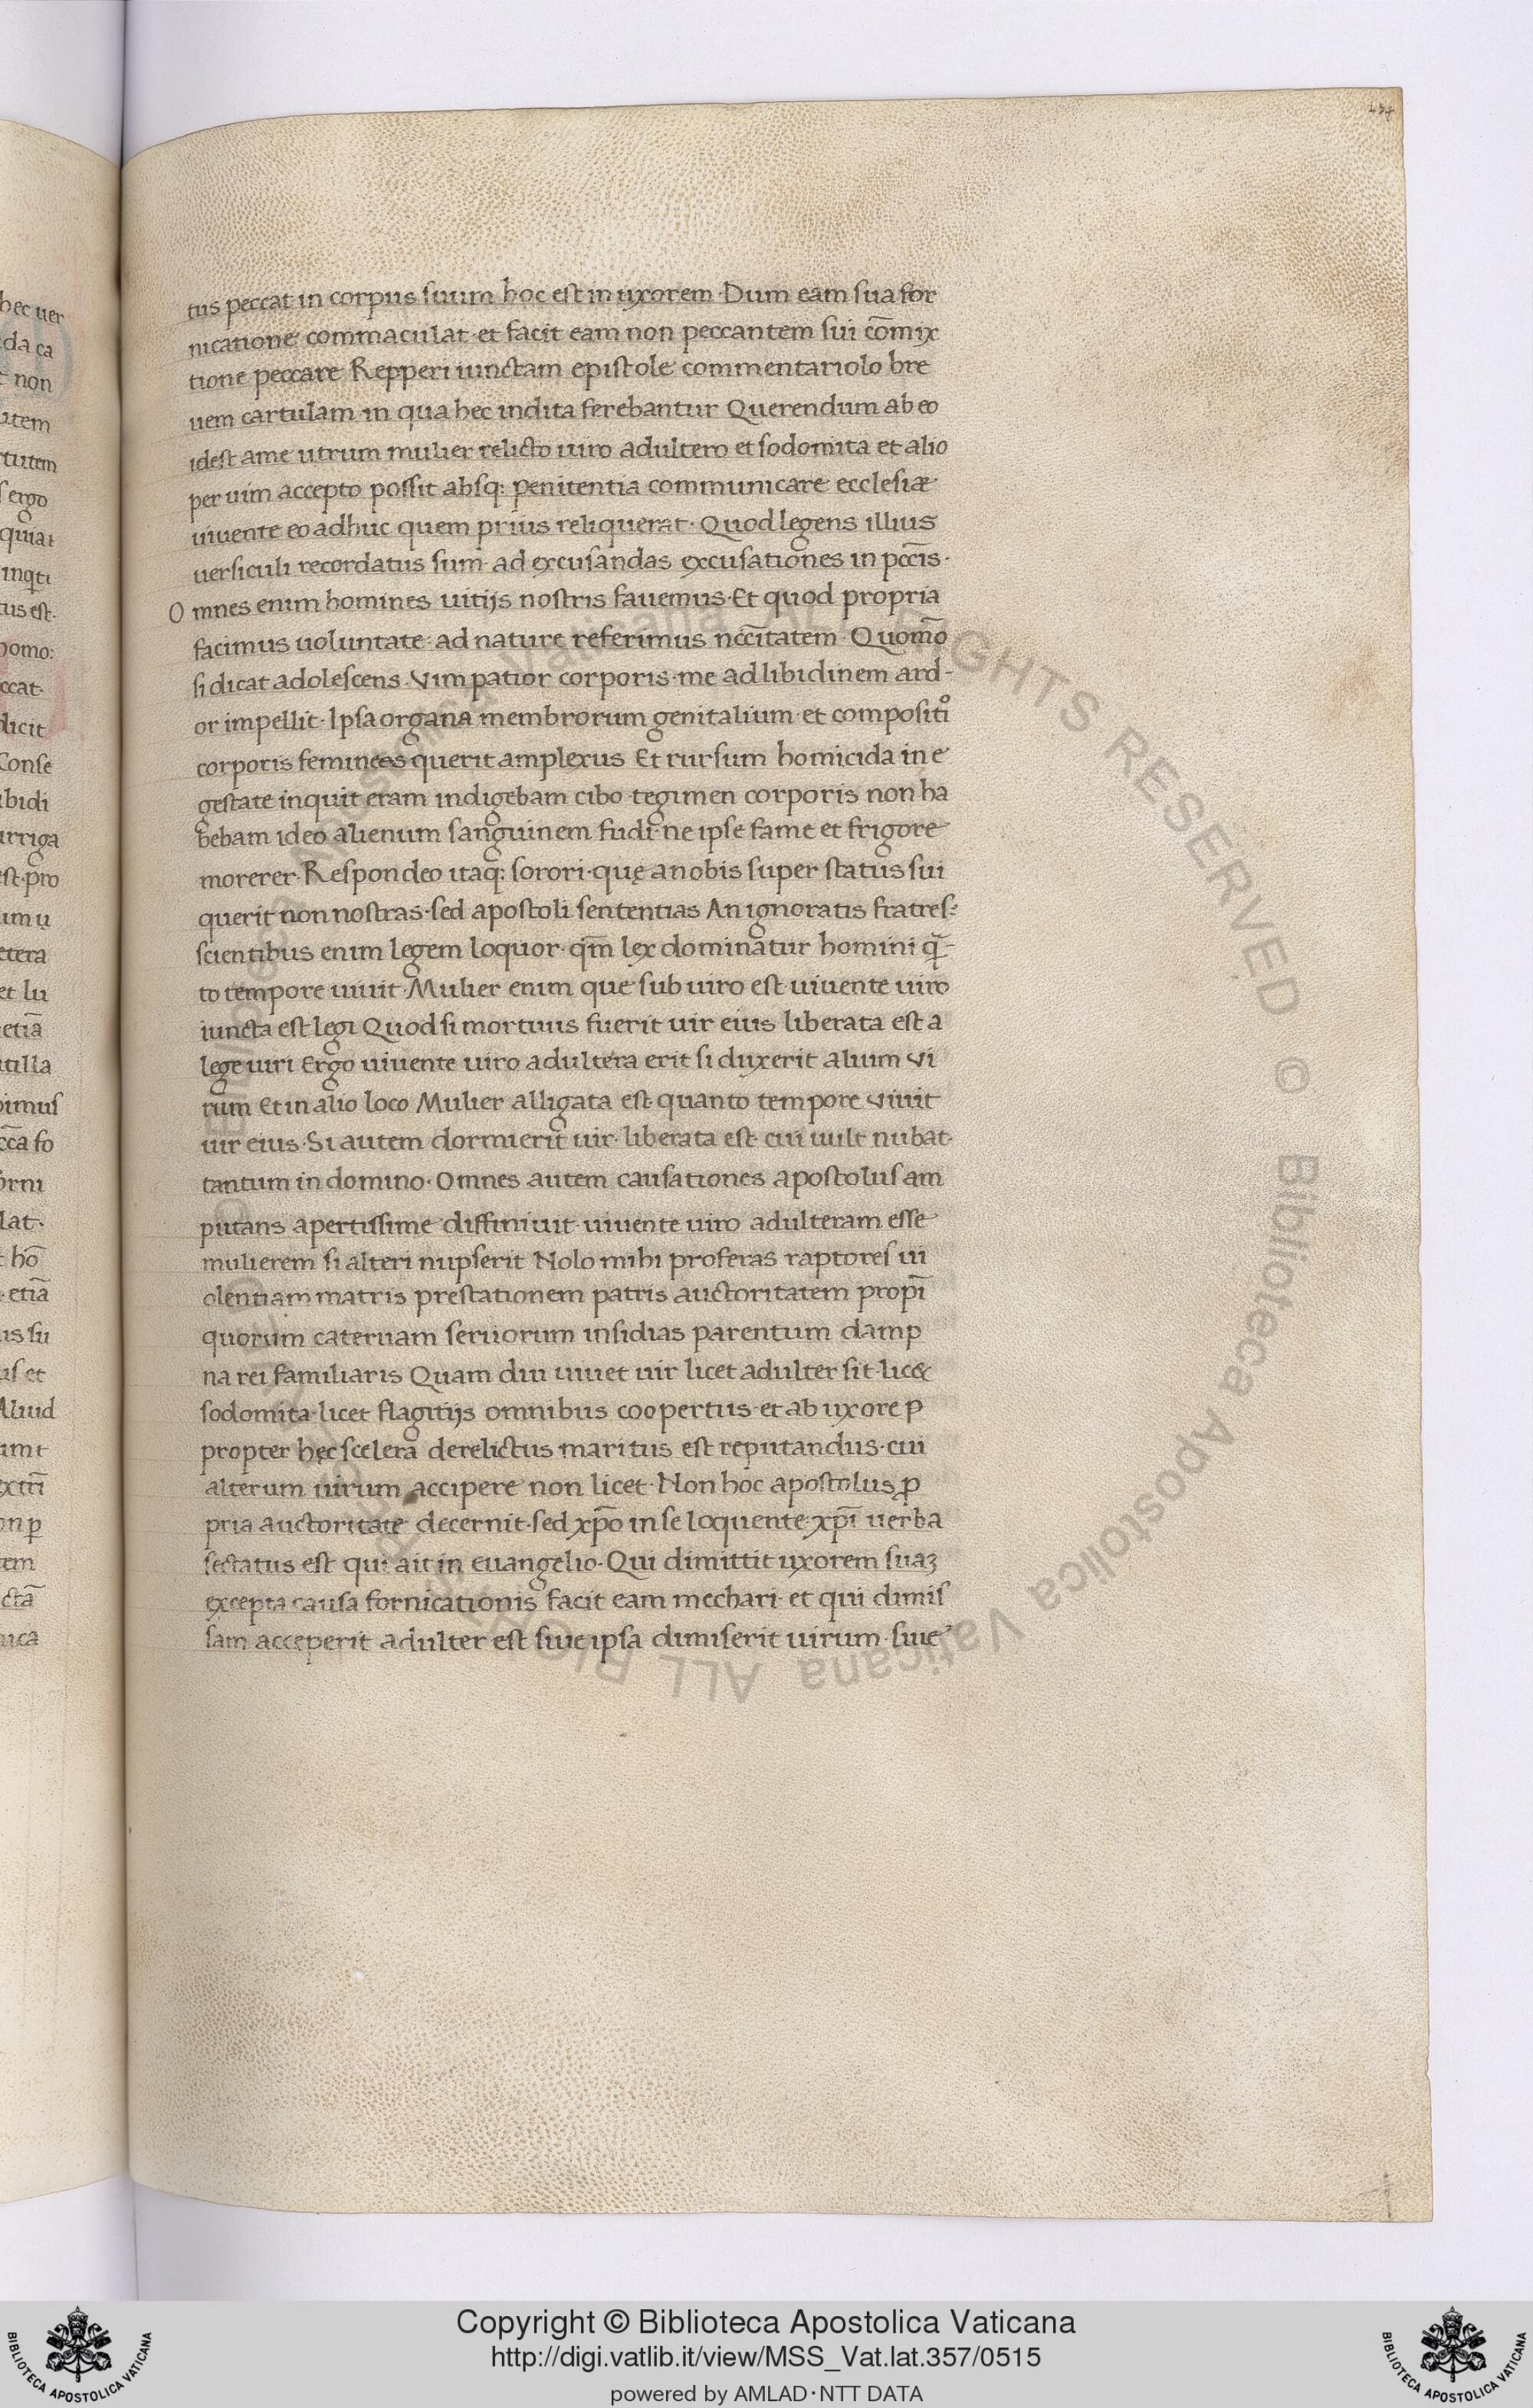 tus peccat in corpus suum hoc est in uxorem · Dum eam sua for
nicatione commaculat · et facit eam non peccantem sui cōmix
tione peccare Repperi iunctam epistole commentariolo bre
uem cartulam in qua hec indita ferebantur Querendum ab eo
idest ame utrum mulier relicto uiro adultero et sodomita et alio
per uim accepto possit absq; penitentia communicare ecclesiæ
uiuente eo adhuc quem prius reliquerat · Quod legens illius
uersiculi recordatus sum · ad excusandas excusationes in pccīs ·
O mnes enim homines uitijs nostris fauemus · Et quod propria
facimus uoluntate · ad nature referimus nccītatem · Quomō
si dicat adolescens · Vim patior corporis · me ad libidinem ard-
or impellit · Ipsa organa membrorum genitalium · et compositiº
corporis femineos querit amplexus Et rursum homicida in e
gestate inquit eram indigebam cibo · tegimen corporis non ha
bebam ideo alienum sanguinem fudi · ne ipse fame et frigore
morerer · Respondeo itaq; sorori · quę a nobis super status sui
querit non nostras · sed apostoli sententias An ignoratis fratres ·
scientibus enim legem loquor · qm̄ lex dominatur homini q̄-
to tempore uiuit · Mulier enim que sub uiro est uiuente uiro
iuncta est legi Quod si mortuus fuerit uir eius liberata est a
lege uiri Ergo uiuente uiro adultera erit si duxerit alium vi
rum Et in alio loco Mulier alligata est quanto tempore viuit
uir eius · Si autem dormierit uir · liberata est · cui uult nubat ·
tantum in domino · Omnes autem causationes apostolus am
putans apertissime diffiniuit · uiuente uiro adulteram esse
mulierem si alteri nupserit Nolo mihi proferas raptores ui
olentiam matris prestationem patris auctoritatem propī
quorum cateruam seruorum insidias parentum damp
na rei familiaris Quam diu uiuet uir licet adulter sit · lic&
sodomita · licet flagitijs omnibus coopertus · et ab uxore p
propter hęc scelera derelictus maritus est reputandus · cui
alterum uirum accipere non licet · Non hoc apostolus ꝓ
pria auctoritate decernit · sed xp̄o in se loquente xp̄i uerba
sectatus est qui ait in euangelio · Qui dimittit uxorem suaꝫ
excepta causa fornicationis facit eam mechari · et qui dimis
sam acceperit adulter est siue ipsa dimiserit uirum · siue
Copyright © Biblioteca Apostolica Vaticana
http://digi.vatlib.it/view/MSS_Vat.lat.357/0515
powered by AMLAD · NTT DATA
BIBLIOTECA APOSTOLICA VATICANA
BIBLIOTECA APOSTOLICA VATICANA